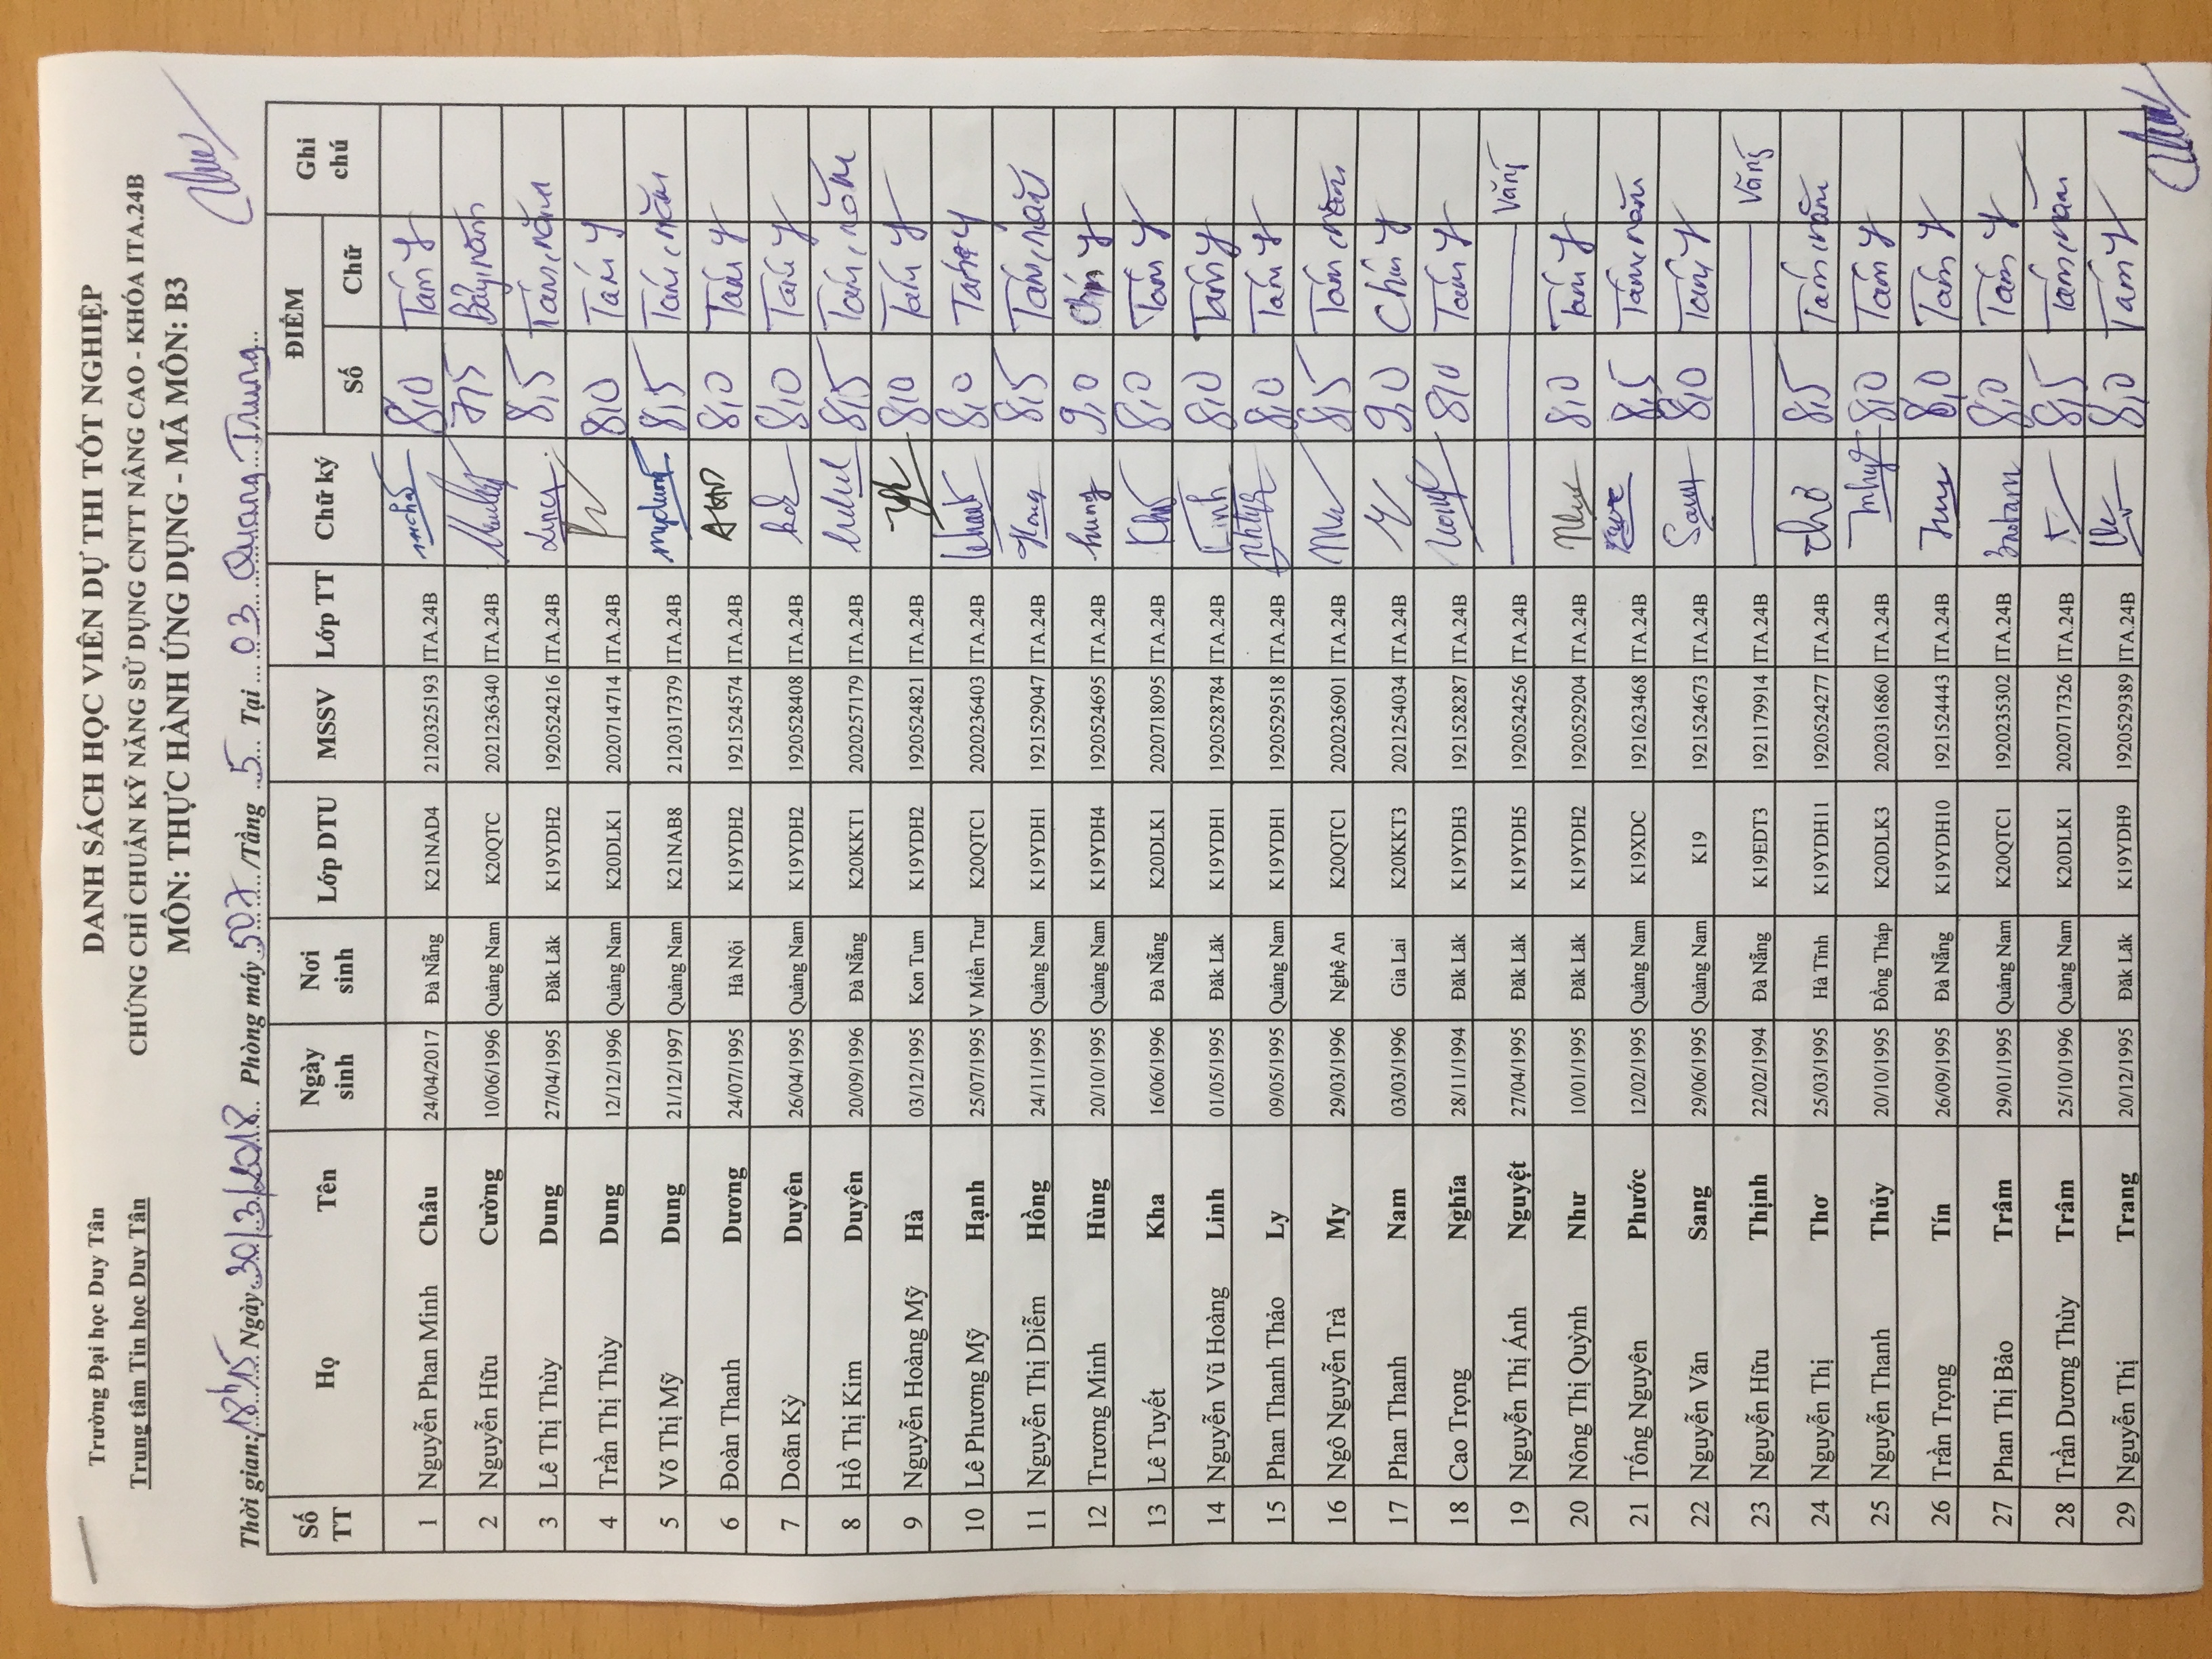 Trường Đại học Duy Tân DANH SÁCH HỌC VIÊN DỰ THI TỐT NGHIỆP
Trung tâm Tin học Duy Tân CHỨNG CHỈ CHUẨN KỸ NĂNG SỬ DỤNG CNTT NÂNG CAO - KHÓA ITA.24B
MÔN: THỰC HÀNH ỨNG DỤNG - MÃ MÔN: B3
Thời gian: 18h15 Ngày 30/3/2018 Phòng máy 507 /Tầng 5 Tại 03 Quang Trung
Số TT Họ Tên Ngày sinh Nơi sinh Lớp DTU MSSV Lớp TT Chữ ký ĐIỂM Số Chữ Ghi chú
1 Nguyễn Phan Minh Châu 24/04/2017 Đà Nẵng K21NAD4 2120325193 ITA.24B 8,0 Tám y
2 Nguyễn Hữu Cường 10/06/1996 Quảng Nam K20QTC 2021236340 ITA.24B 7,5 Bảy, năm
3 Lê Thị Thùy Dung 27/04/1995 Đăk Lăk K19YDH2 1920524216 ITA.24B Dung 8,5 Tám, năm
4 Trần Thị Thùy Dung 12/12/1996 Quảng Nam K20DLK1 2020714714 ITA.24B 8,0 Tám y
5 Võ Thị Mỹ Dung 21/12/1997 Quảng Nam K21NAB8 2120317379 ITA.24B mydung 8,5 Tám, năm
6 Đoàn Thanh Dương 24/07/1995 Hà Nội K19YDH2 1921524574 ITA.24B 8,0 Tám y
7 Doãn Kỳ Duyên 26/04/1995 Quảng Nam K19YDH2 1920528408 ITA.24B 8,0 Tám y
8 Hồ Thị Kim Duyên 20/09/1996 Đà Nẵng K20KKT1 2020257179 ITA.24B 8,5 Tám, năm
9 Nguyễn Hoàng Mỹ Hà 03/12/1995 Kon Tum K19YDH2 1920524821 ITA.24B 8,0 Tám y
10 Lê Phương Mỹ Hạnh 25/07/1995 V Miền Trun K20QTC1 2020236403 ITA.24B 8,0 Tám y
11 Nguyễn Thị Diễm Hồng 24/11/1995 Quảng Nam K19YDH1 1921529047 ITA.24B Hong 8,5 Tám, năm
12 Trương Minh Hùng 20/10/1995 Quảng Nam K19YDH4 1920524695 ITA.24B hung 9,0 Chín y
13 Lê Tuyết Kha 16/06/1996 Đà Nẵng K20DLK1 2020718095 ITA.24B Kha 8,0 Tám y
14 Nguyễn Vũ Hoàng Linh 01/05/1995 Đăk Lăk K19YDH1 1920528784 ITA.24B Linh 8,0 Tám y
15 Phan Thanh Thảo Ly 09/05/1995 Quảng Nam K19YDH1 1920529518 ITA.24B 8,0 Tám y
16 Ngô Nguyễn Trà My 29/03/1996 Nghệ An K20QTC1 2020236901 ITA.24B 8,5 Tám, năm
17 Phan Thanh Nam 03/03/1996 Gia Lai K20KKT3 2021254034 ITA.24B 9,0 Chín y
18 Cao Trọng Nghĩa 28/11/1994 Đăk Lăk K19YDH3 1921528287 ITA.24B 8,0 Tám y
19 Nguyễn Thị Ánh Nguyệt 27/04/1995 Đăk Lăk K19YDH5 1920524256 ITA.24B Vắng
20 Nông Thị Quỳnh Như 10/01/1995 Đăk Lăk K19YDH2 1920529204 ITA.24B 8,0 Tám y
21 Tống Nguyên Phước 12/02/1995 Quảng Nam K19XDC 1921623468 ITA.24B 8,5 Tám, năm
22 Nguyễn Văn Sang 29/06/1995 Quảng Nam K19 1921524673 ITA.24B Sang 8,0 Tám y
23 Nguyễn Hữu Thịnh 22/02/1994 Đà Nẵng K19EDT3 1921179914 ITA.24B Vắng
24 Nguyễn Thị Thơ 25/03/1995 Hà Tĩnh K19YDH11 1920524277 ITA.24B thơ 8,5 Tám, năm
25 Nguyễn Thanh Thủy 20/10/1995 Đồng Tháp K20DLK3 2020316860 ITA.24B 8,0 Tám y
26 Trần Trọng Tín 26/09/1995 Đà Nẵng K19YDH10 1921524443 ITA.24B 8,0 Tám y
27 Phan Thị Bảo Trâm 29/01/1995 Quảng Nam K20QTC1 1920235302 ITA.24B 8,0 Tám y
28 Trần Dương Thùy Trâm 25/10/1996 Quảng Nam K20DLK1 2020717326 ITA.24B 8,5 Tám, năm
29 Nguyễn Thị Trang 20/12/1995 Đăk Lăk K19YDH9 1920529389 ITA.24B 8,0 Tám y